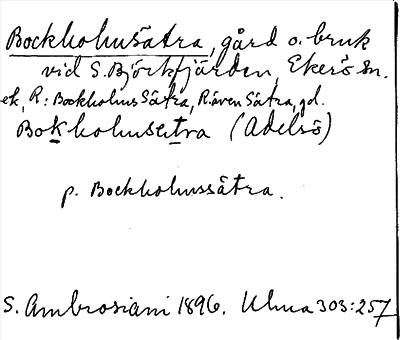 Bockholmsätra, gård o. bruk
vid S. Björkfjärden, Ekerö sn.
ek, R: Bockholms Sätra, R. även Sätra, gd.
Bokholmsetra (Adelsö)
p. Bockholmssätra.
S. Ambrosiani 1896. Ulma 303:257